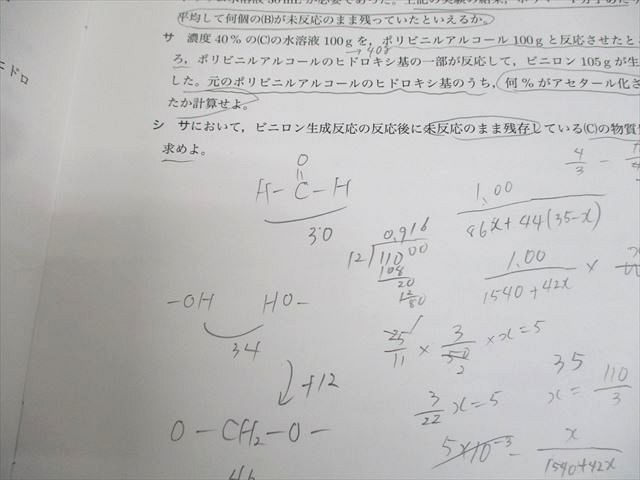 平均して何個の(B)が未反応のまま残っていたといえるか。
サ 濃度40%の(C)の水溶液100gを，ポリビニルアルコール100gと反応させたとこ
→40g
ろ，ポリビニルアルコールのヒドロキシ基の一部が反応して，ビニロン105gが生
した。元のポリビニルアルコールのヒドロキシ基のうち，何%がアセタール化さ
たか計算せよ。
シ サにおいて，ビニロン生成反応の反応後に未反応のまま残存している(C)の物質
求めよ。
ニドロ
O
H-C-H
30
-OH HO-
34
+12
O-CH2-O-
46
0.916
12 110 00
108
20
12
80
4/3 -
1.00
86x+44(35-x)
1.00
1540+42x ×
25/11 × 3/50 × x=5
2
3/22 x=5
35
x= 110/3
5×10^-3 =
x
1540+42x